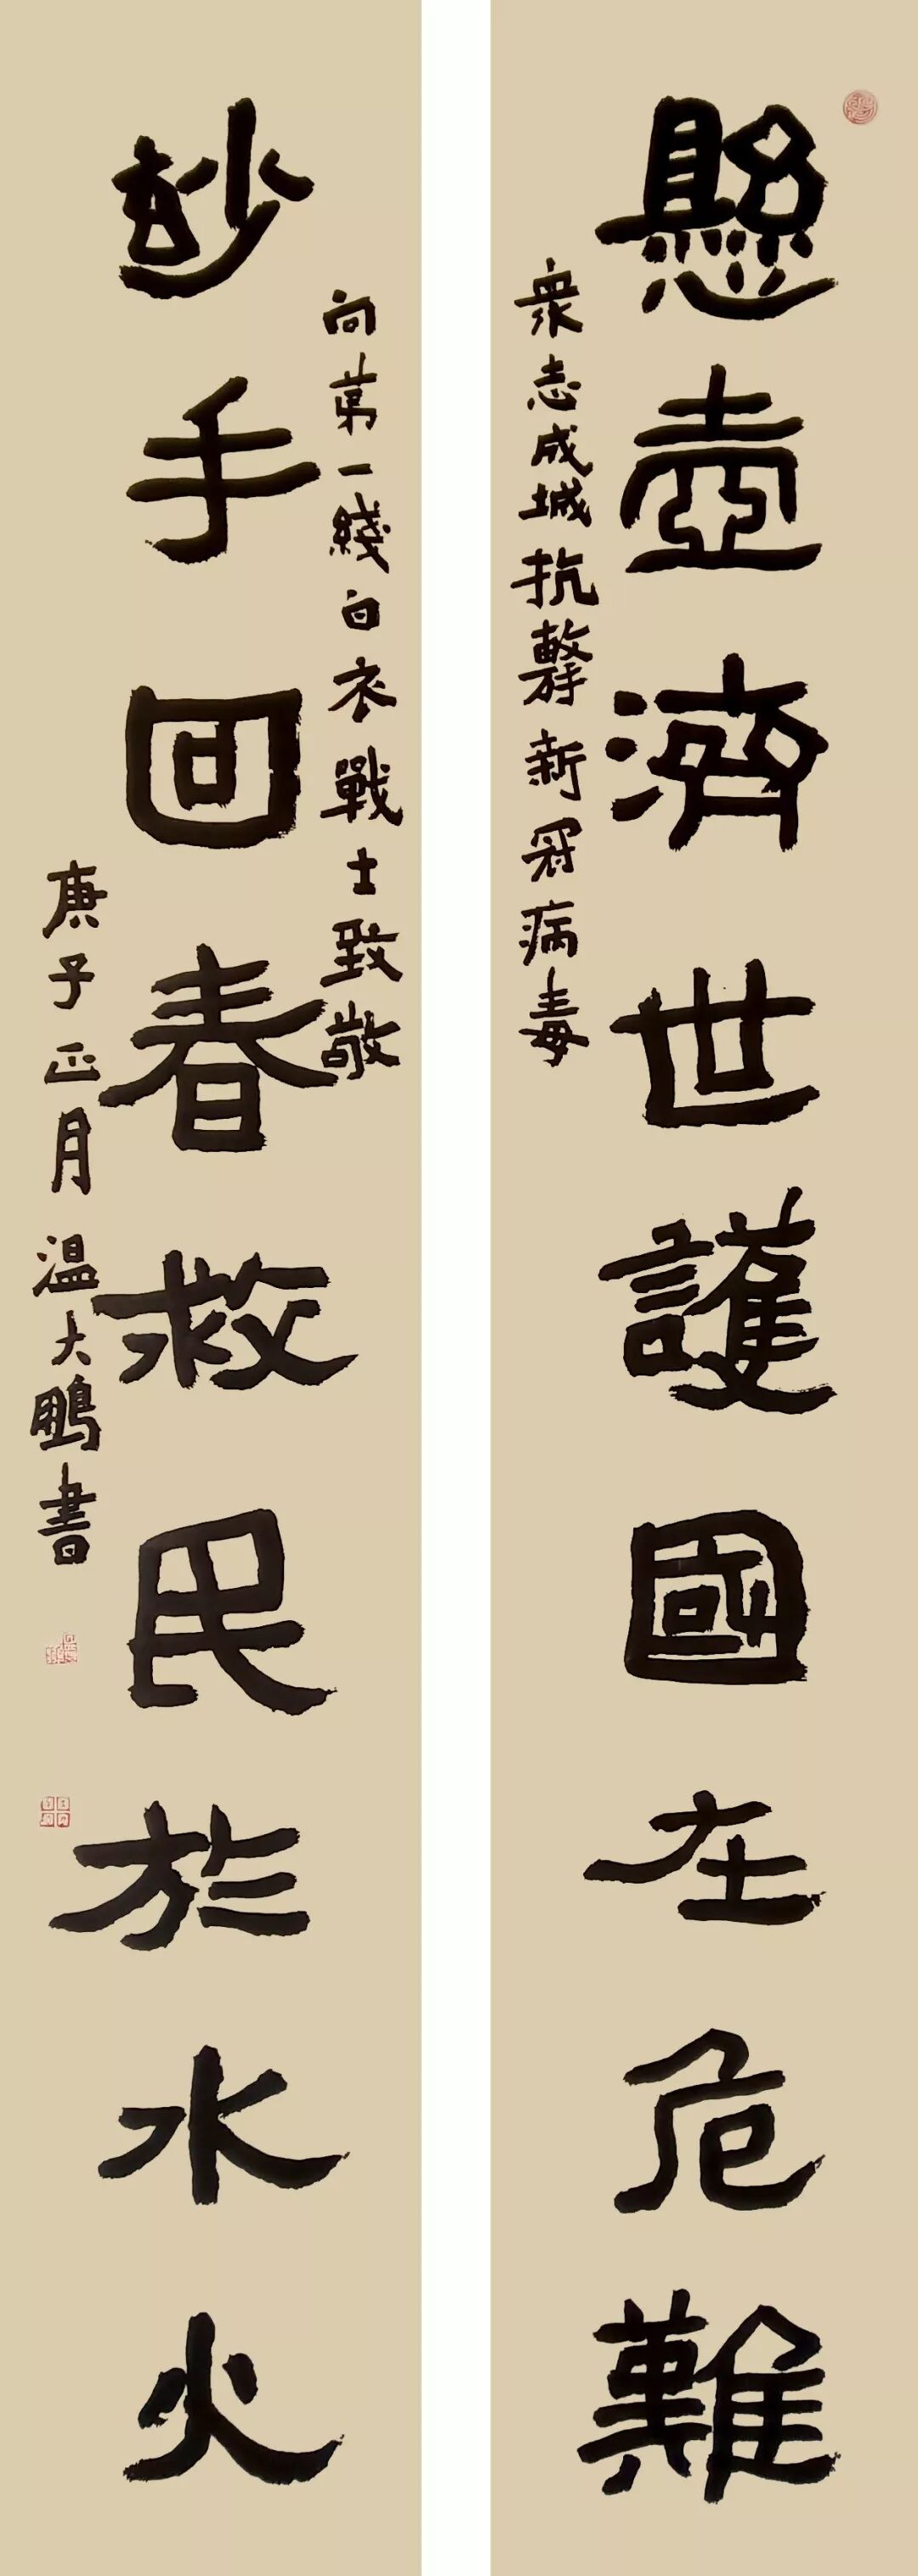 懸壺濟世護國在危難
衆志成城抗擊新冠病毒
向第一綫白衣戰士致敬
玅手回春救民於水火
庚子正月溫大鵬書